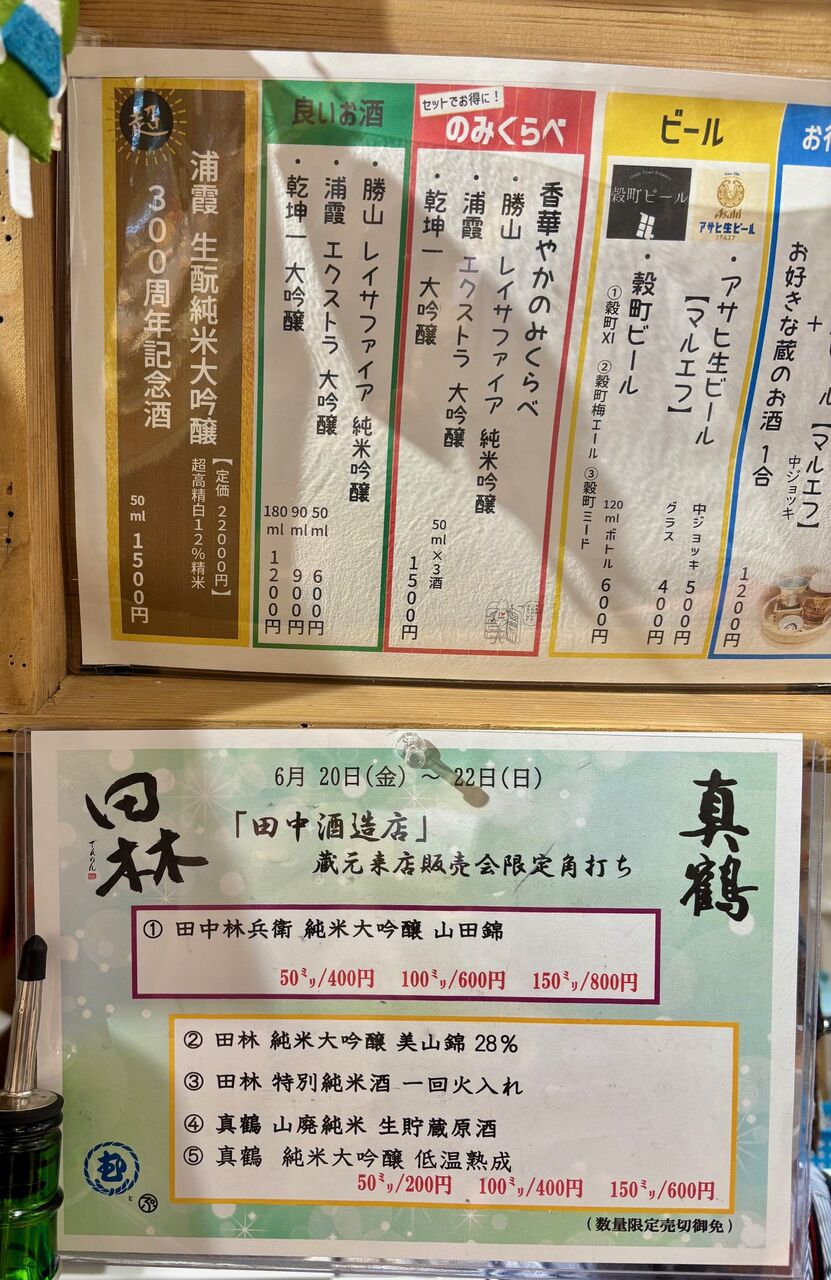 超
浦霞 生酛純米大吟醸
300周年記念酒
【定価 22000円】
超高精白12%精米
50ml 1500円
良いお酒
・勝山 レイサファイア 純米吟醸
・浦霞 エクストラ 大吟醸
・乾坤一 大吟醸
50ml 600円
90ml 900円
180ml 1200円
セットでお得に!
のみくらべ
香華やかのみくらべ
・勝山 レイサファイア 純米吟醸
・浦霞 エクストラ 大吟醸
・乾坤一 大吟醸
50ml×3酒
1500円
ビール
穀町ビール
Asahi
アサヒ生ビール
・アサヒ生ビール
【マルエフ】
中ジョッキ 500円
グラス 400円
・穀町ビール
①穀町XI ②穀町梅エール ③穀町ミード
120mlボトル 600円
お得
ル【マルエフ】
中ジョッキ
+
お好きな蔵のお酒 1合
1200円
6月 20日(金) ~ 22日(日)
田林
でんりん
「田中酒造店」
真鶴
蔵元来店販売会限定角打ち
① 田中林兵衛 純米大吟醸 山田錦
50㍉/400円 100㍉/600円 150㍉/800円
② 田林 純米大吟醸 美山錦 28%
③ 田林 特別純米酒 一回火入れ
④ 真鶴 山廃純米 生貯蔵原酒
⑤ 真鶴 純米大吟醸 低温熟成
50㍉/200円 100㍉/400円 150㍉/600円
(数量限定売切御免)